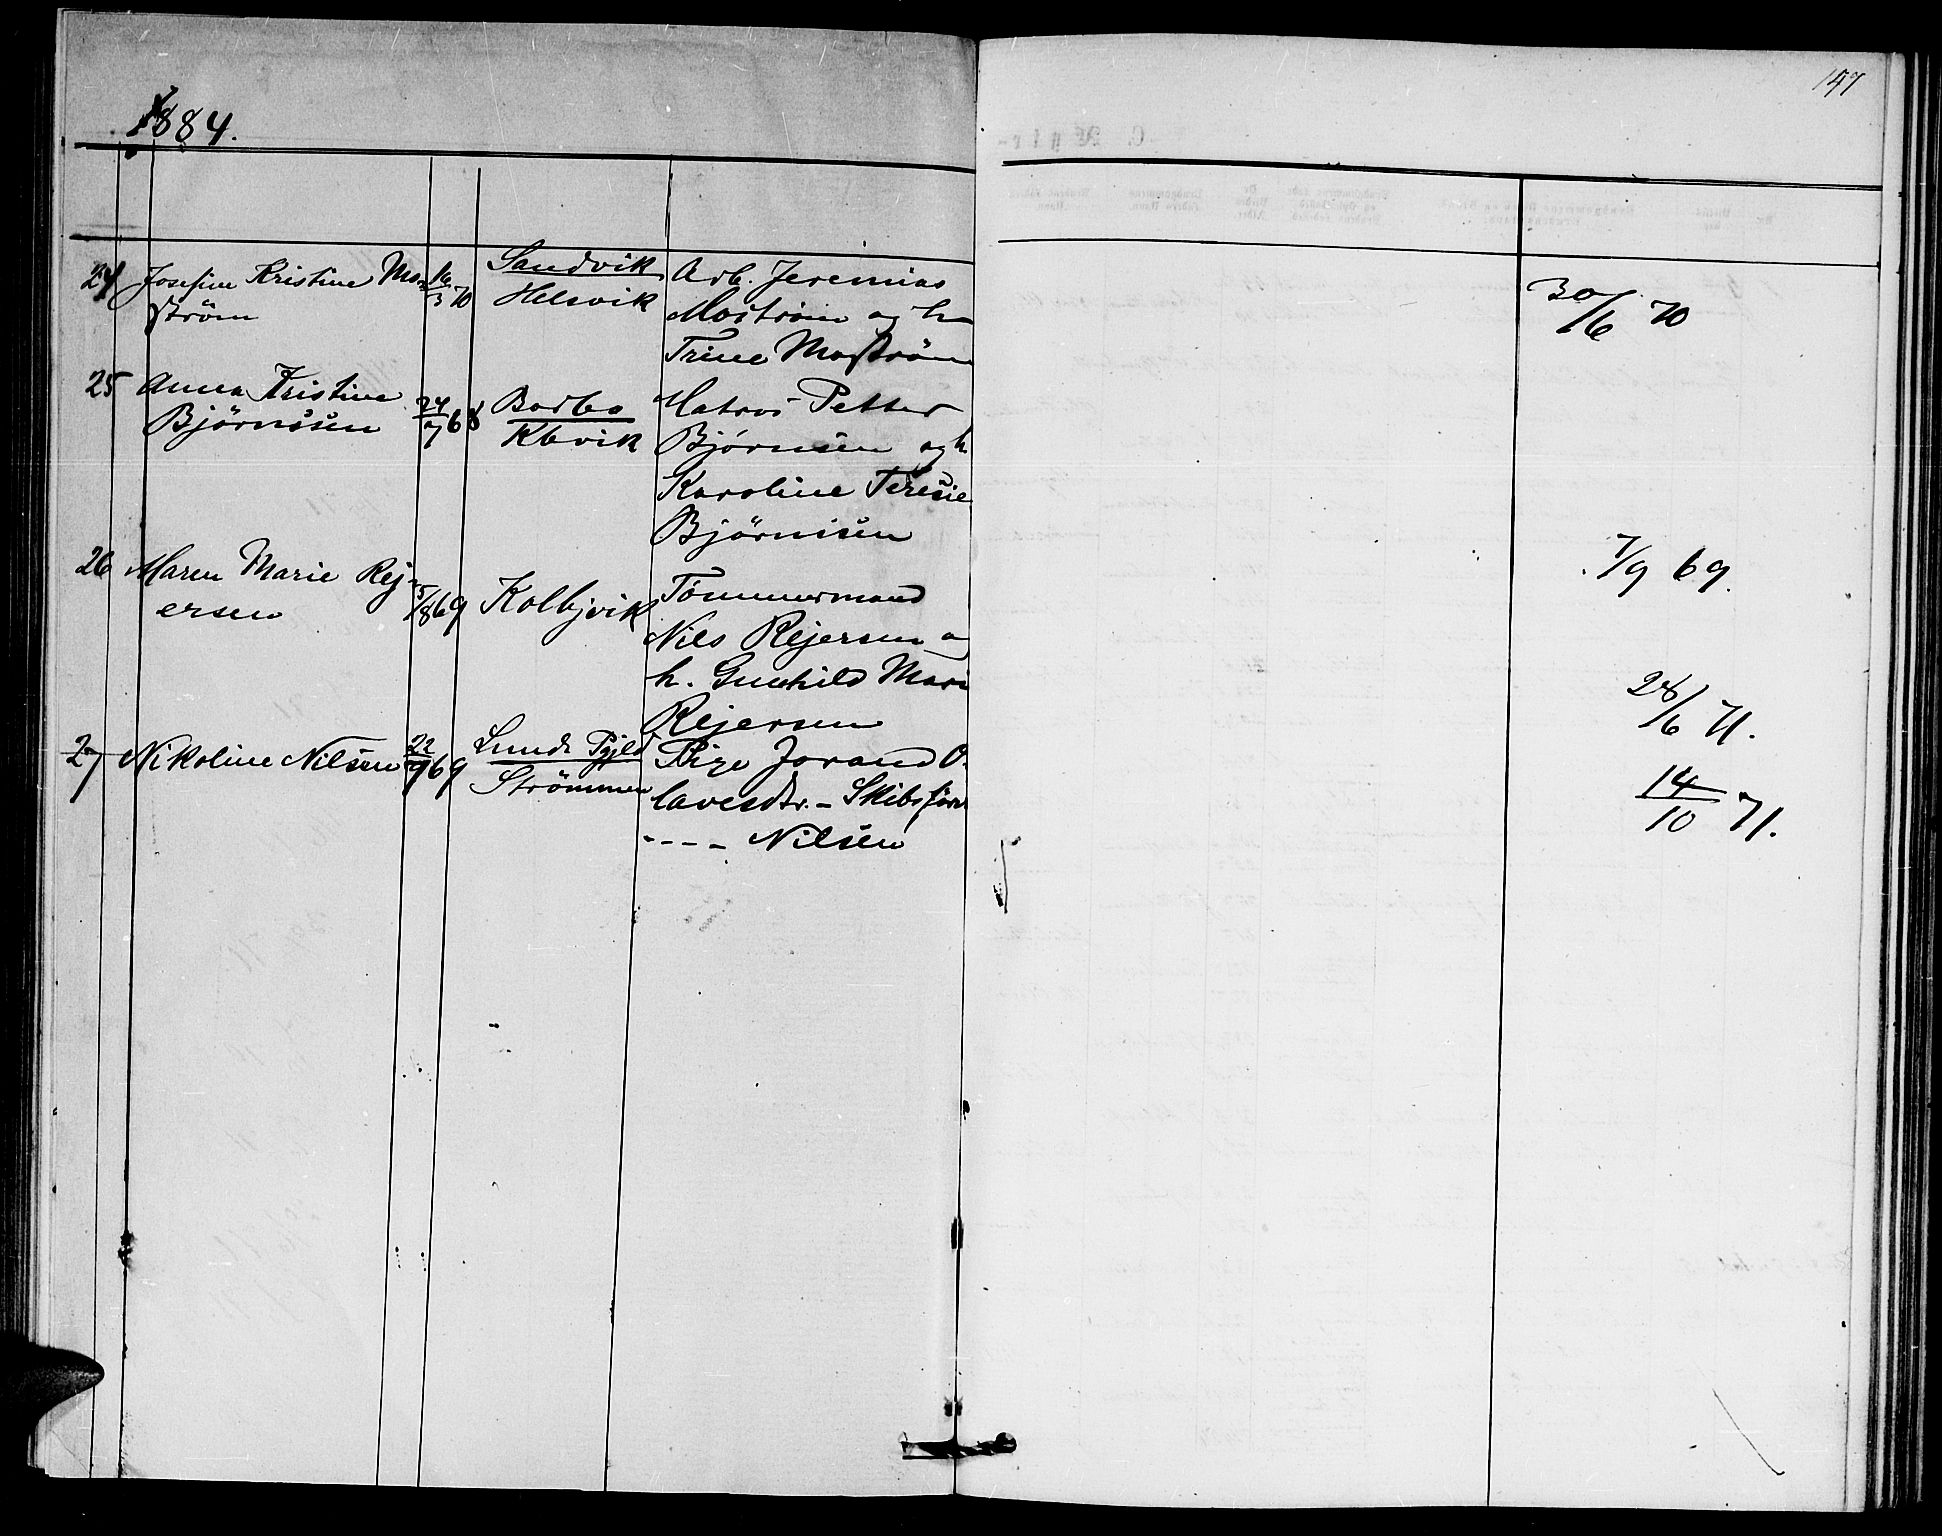 1884.
147
24 Josefine Kristine Mo- 16/3 70 Sandvik Arb. Jeremias 30/6 70
ström Helsvik Moström og h
Trine Moström
25 Anna Kristine 24/7 68 Barbo Matros Petter
Björnssen Kbvik Björnsen og h
Karoline Teresie
Björnsen
26 Maren Marie Rej- 5/8 69 Kolbjvik Tömmermand 7/9 69.
ersen Nils Rejersen o
h. Gunhild Mari 28/6 71.
Rejersen
27 Nikoline Nilsen 22/9 69 Pige Jorand O- 14/10 71.
Strömmen lavesdtr. - Skibsförer
- - - - Nilsen